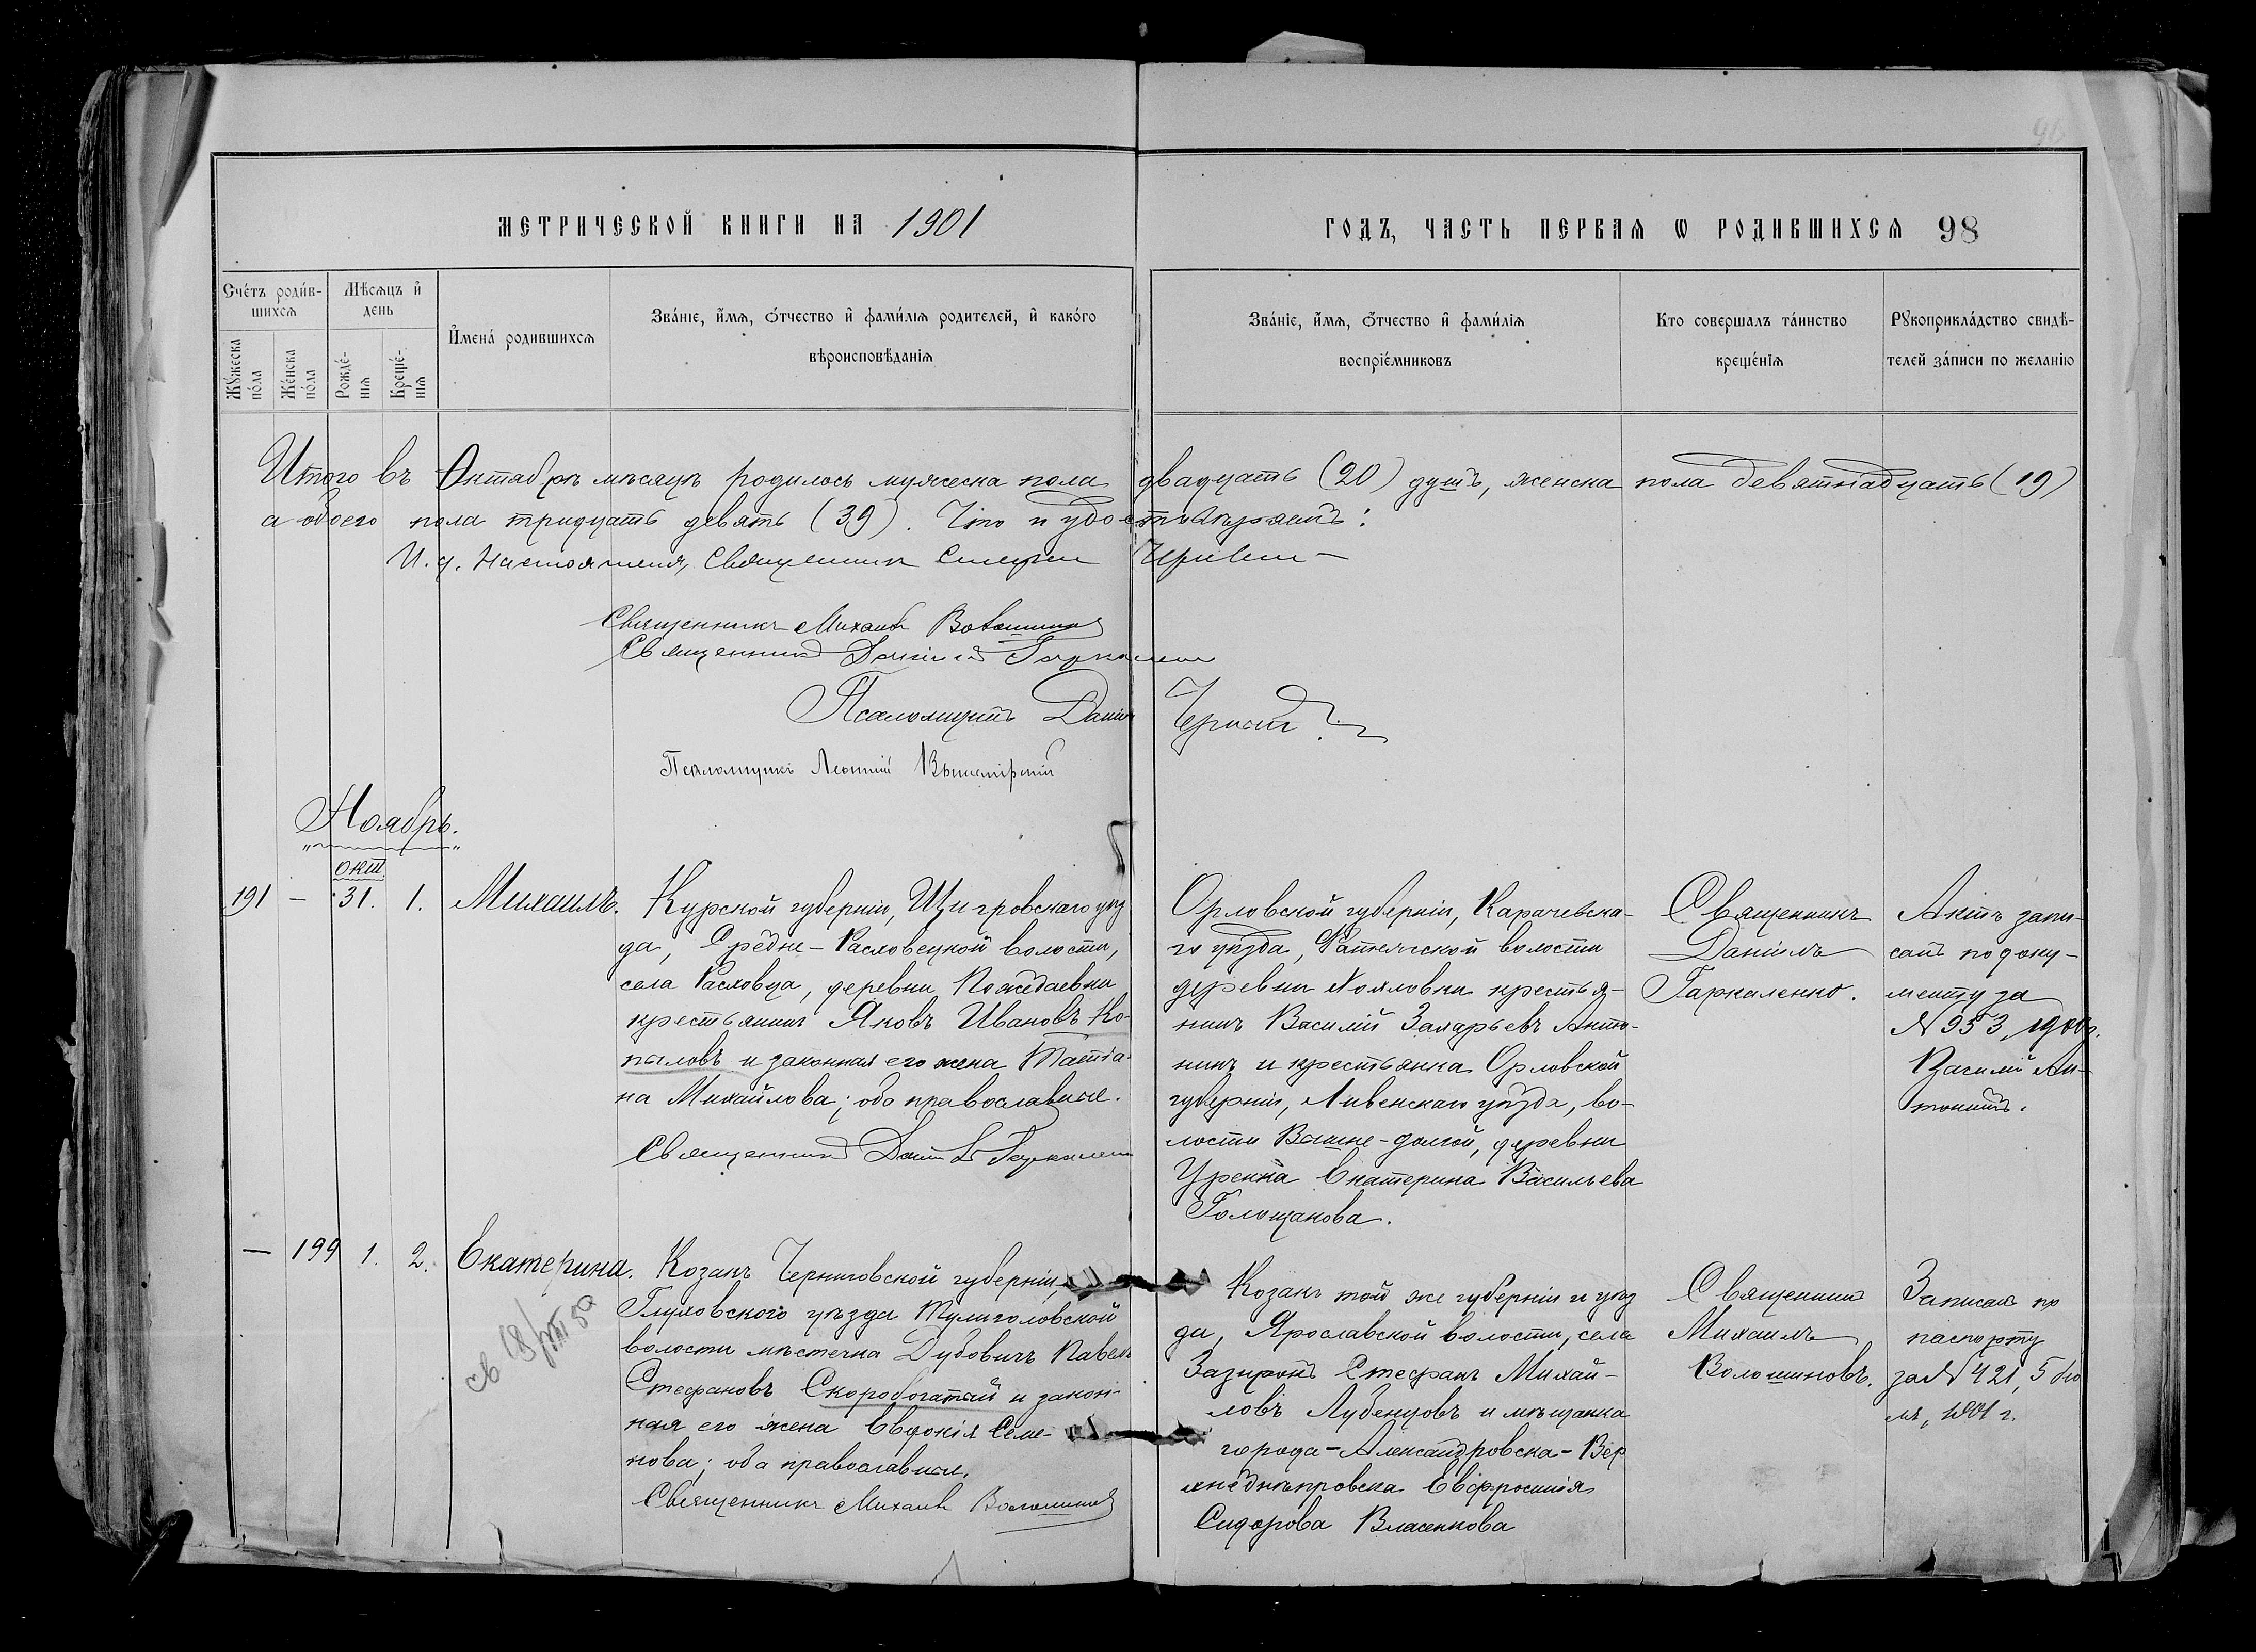 МЕТРИЧЕСКОЙ КНИГИ НА 1901
ГОДЪ, ЧАСТЬ ПЕРВАЯ Ѡ РОДИВШИХСЯ 98
Счетъ родив-
шихся
Мѣсяцъ и
день
Мужеска
пола
Женска
пола
Рожде-
нія
Креще-
нія
Имена родившихся
Званіе, имя, отчество и фамилія родителей, и какого
вѣроисповѣданія
Званіе, имя, отчество и фамилія
воспріемниковъ
Кто совершалъ таинство
крещенія
Рукоприкладство свидѣ-
телей записи по желанію
Итого въ Октябрѣ мѣсяцѣ родилось мужеска пола двадцать (20) душъ, женска пола девятнадцать (19)
а обоего пола тридцать девять (39). Что и удостовѣряемъ:
И. д. Настоятеля, Священникъ
Священникъ Михаилъ Волошиновъ
Священникъ Даніилъ Гаркаленко
Псаломщикъ Даніилъ
Псаломщикъ Леонтій
Ноябрь.
окт.
191 — 31. 1. Михаилъ.
Курской губерніи, Щигровскаго уѣз
да, Средне-Расховецкой волости,
села Расховца, деревни Пождаевки
крестьянинъ Яковъ Ивановъ Ко-
пыловъ и законная его жена Татіа-
на Михайлова; оба православные.
Священникъ Даніилъ Гаркаленко
Орловской губерніи, Карачевска-
го уѣзда, волости
деревни крестья-
нинъ Василій Захарьевъ Анто-
нинъ и крестьянка Орловской
губерніи, Ливенскаго уѣзда, во-
лости Вышне-долгой, деревни
Екатерина Васильева
Голощапова.
Священникъ
Даніилъ
Гаркаленко.
Актъ запи-
санъ по доку-
менту за
№ 953,
Василій Ан-
тонинъ.
— 199 1. 2. Екатерина.
св 18/VIII 50
Козакъ Черниговской губерніи,
Глуховского уѣзда Тулиголовской
волости мѣстечка Дубовичъ Павелъ
Стефановъ Скоробогатый и закон-
ная его жена Евдокія Семе-
нова; оба православные.
Священникъ Михаилъ Волошиновъ
Козакъ той же губерніи и уѣз
да, Ярославской волости, села
Зазирокъ Стефанъ Михай-
ловъ Лубенцовъ и мѣщанка
города-Александровска-Вер
хнеднѣпровска Евфросинія
Сидорова Власенкова
Священникъ
Михаилъ
Волошиновъ.
Записанъ по
паспорту
за № 421, 5 Ію
ля, 1901 г.